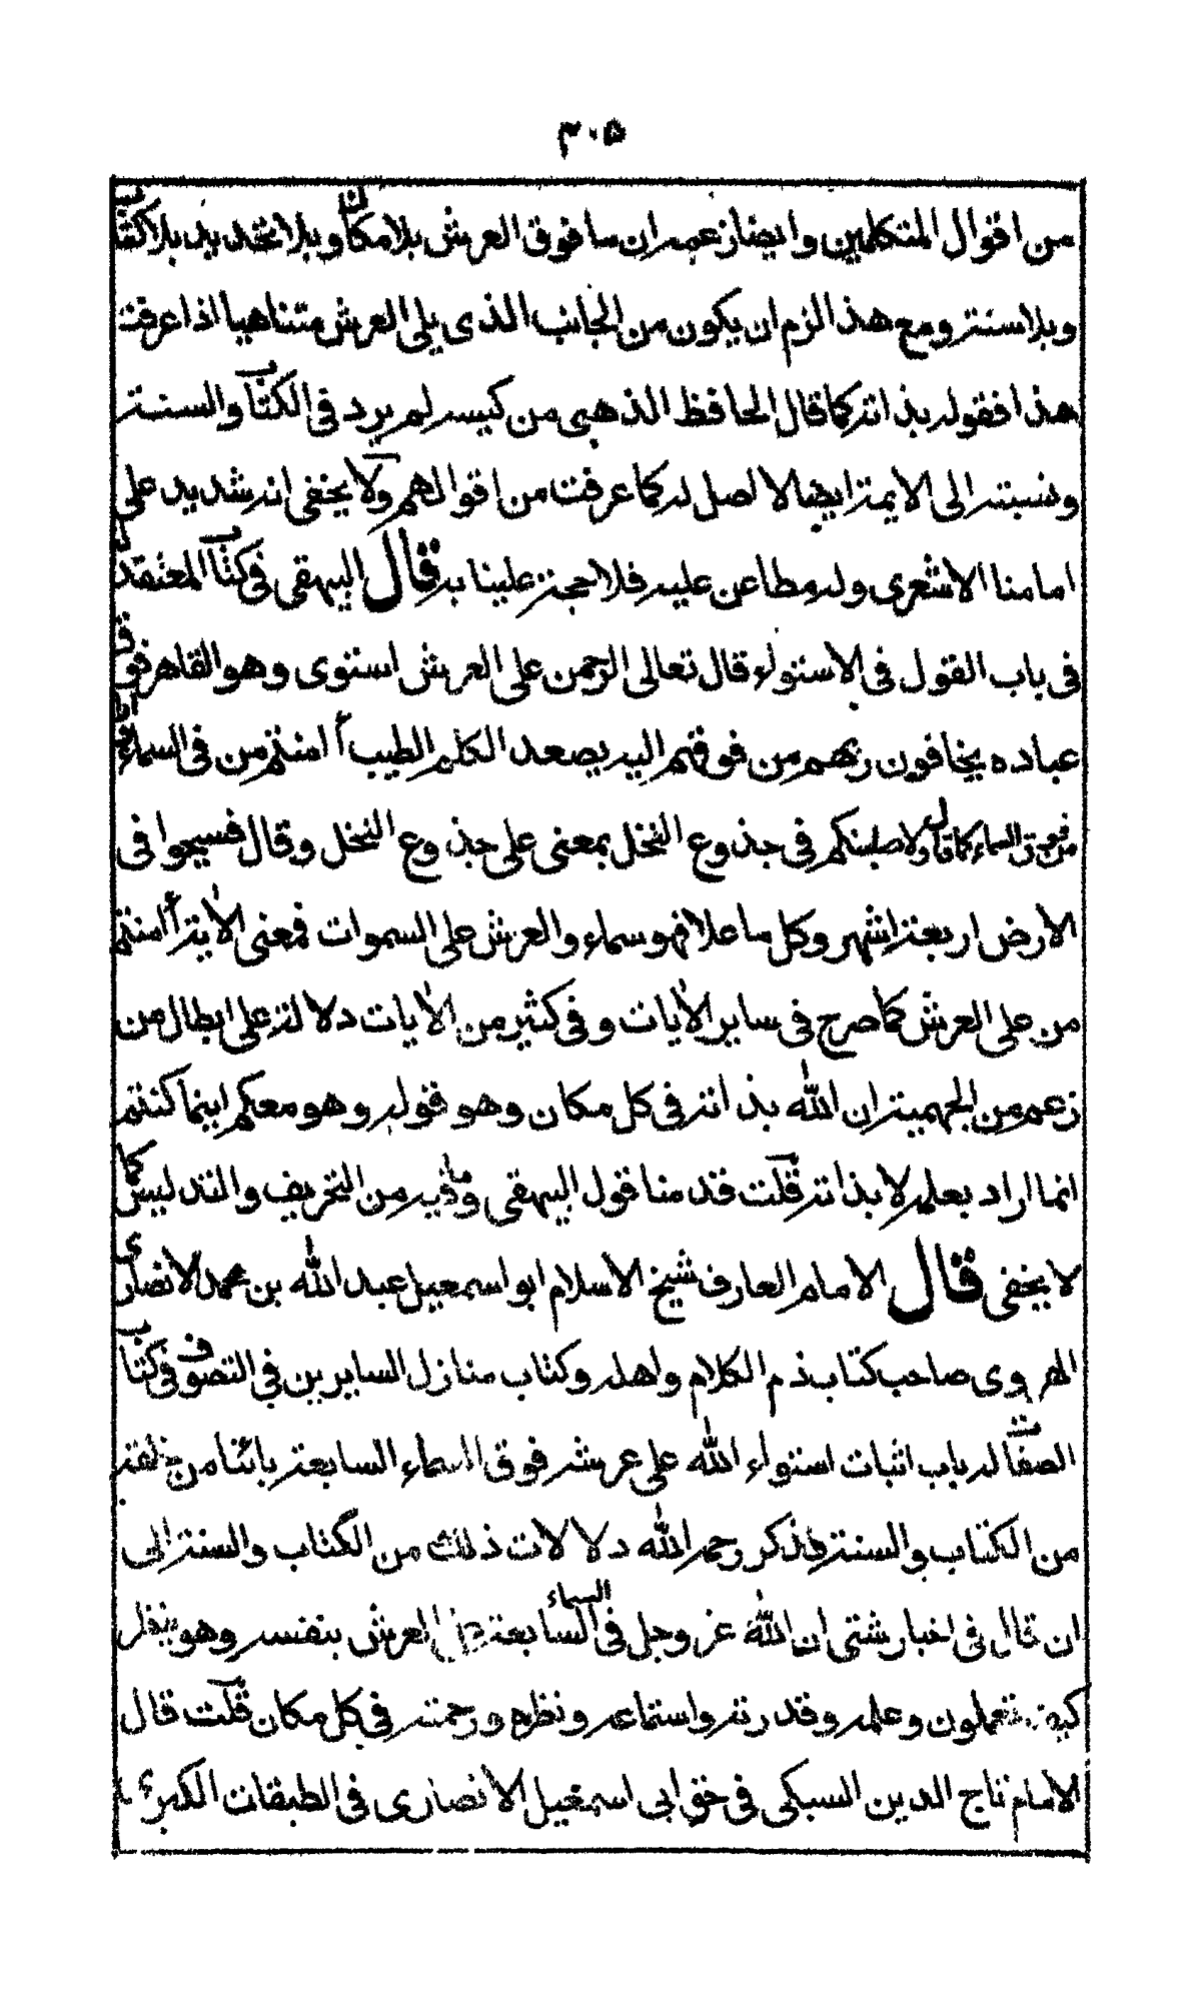 ٣٠٥
من اقوال المتكلمين وايضا زعمه ان ما فوق العرش بلا مكان وبلا تحديد بلا كتاب
وبلا سنة ومع هذا لزم ان يكون من الجانب الذى يلى العرش متناهيا اذا عرفت
هذا فقوله بذاته كما قال الحافظ الذهبى من كيسه لم يرد فى الكتاب والسنة
ونسبته الى الايمة ايضا لا اصل له كما عرفت من اقوالهم ولا يخفى انه شديد على
امامنا الاشعرى وله مطاعن عليه فلا حجة علينا به قال البيهقى فى كتاب المعتقد له
فى باب القول فى الاستواء قال تعالى الرحمن على العرش استوى وهو القاهر فوق
عباده يخافون ربهم من فوقهم اليه يصعد الكلم الطيب أ امنتم من فى السماء اراد
من فوق السماء كما قال ولاصلبنكم فى جذوع النخل بمعنى على جذوع النخل وقال فسيحوا فى
الأرض اربعة اشهر وكل ما علا فهو سماء والعرش على السموات فمعنى الاية أ امنتم
من على العرش كما صرح فى ساير الايات وفى كثير من الايات دلالة على ابطال من
زعم من الجهمية ان الله بذاته فى كل مكان وهو قوله وهو معكم اينما كنتم
انما اراد بعلمه لا بذاته قلت قد منا قول البيهقى وما فيه من التحريف والتدليس كما
لا يخفى قال الامام العارف شيخ الاسلام ابو اسمعيل عبد الله بن محمد الانصارى
الهروى صاحب كتاب ذم الكلام واهله وكتاب منازل السايرين فى التصوف فى كتاب
الصفات له باب اثبات استواء الله على عرشه فوق السماء السابعة باينا من خلقه
من الكتاب والسنة فذكر رحمه الله دلالات ذلك من الكتاب والسنة الى
ان قال فى اخبار شتى ان الله عز وجل فى السماء السابعة على العرش بنفسه وهو ينظر
كيف تعملون وعلمه وقدرته واستماعه ونظره ورحمته فى كل مكان قلت قال
الامام تاج الدين السبكى فى حق ابى اسمعيل الانصارى فى الطبقات الكبرى